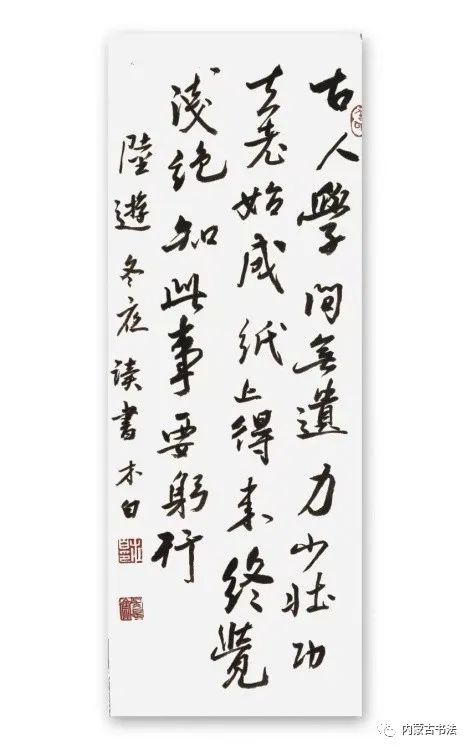 古人學問無遺力少壯功
夫老始成紙上得來終覺
淺絕知此事要躬行
陸遊冬夜读書木白
内蒙古书法